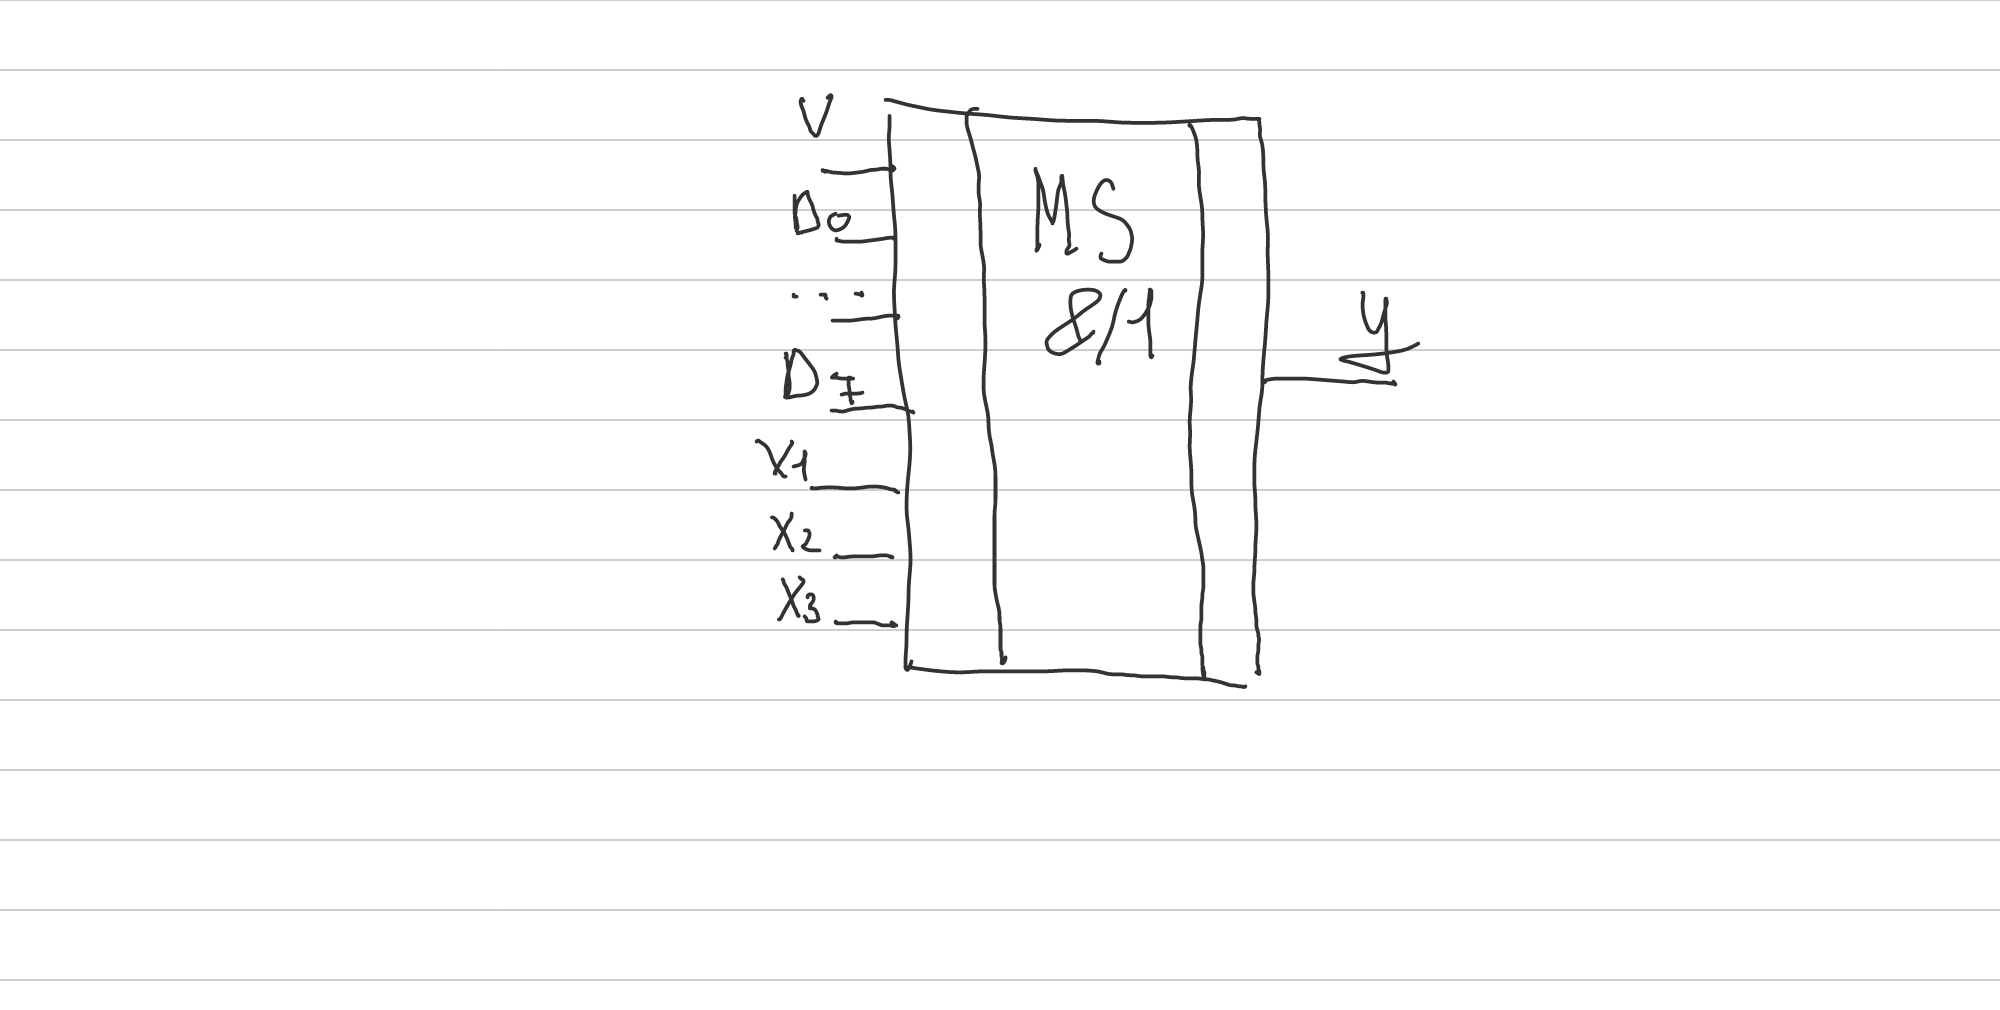 V
D0
...
D7
X1
X2
X3
MS
8/1
y